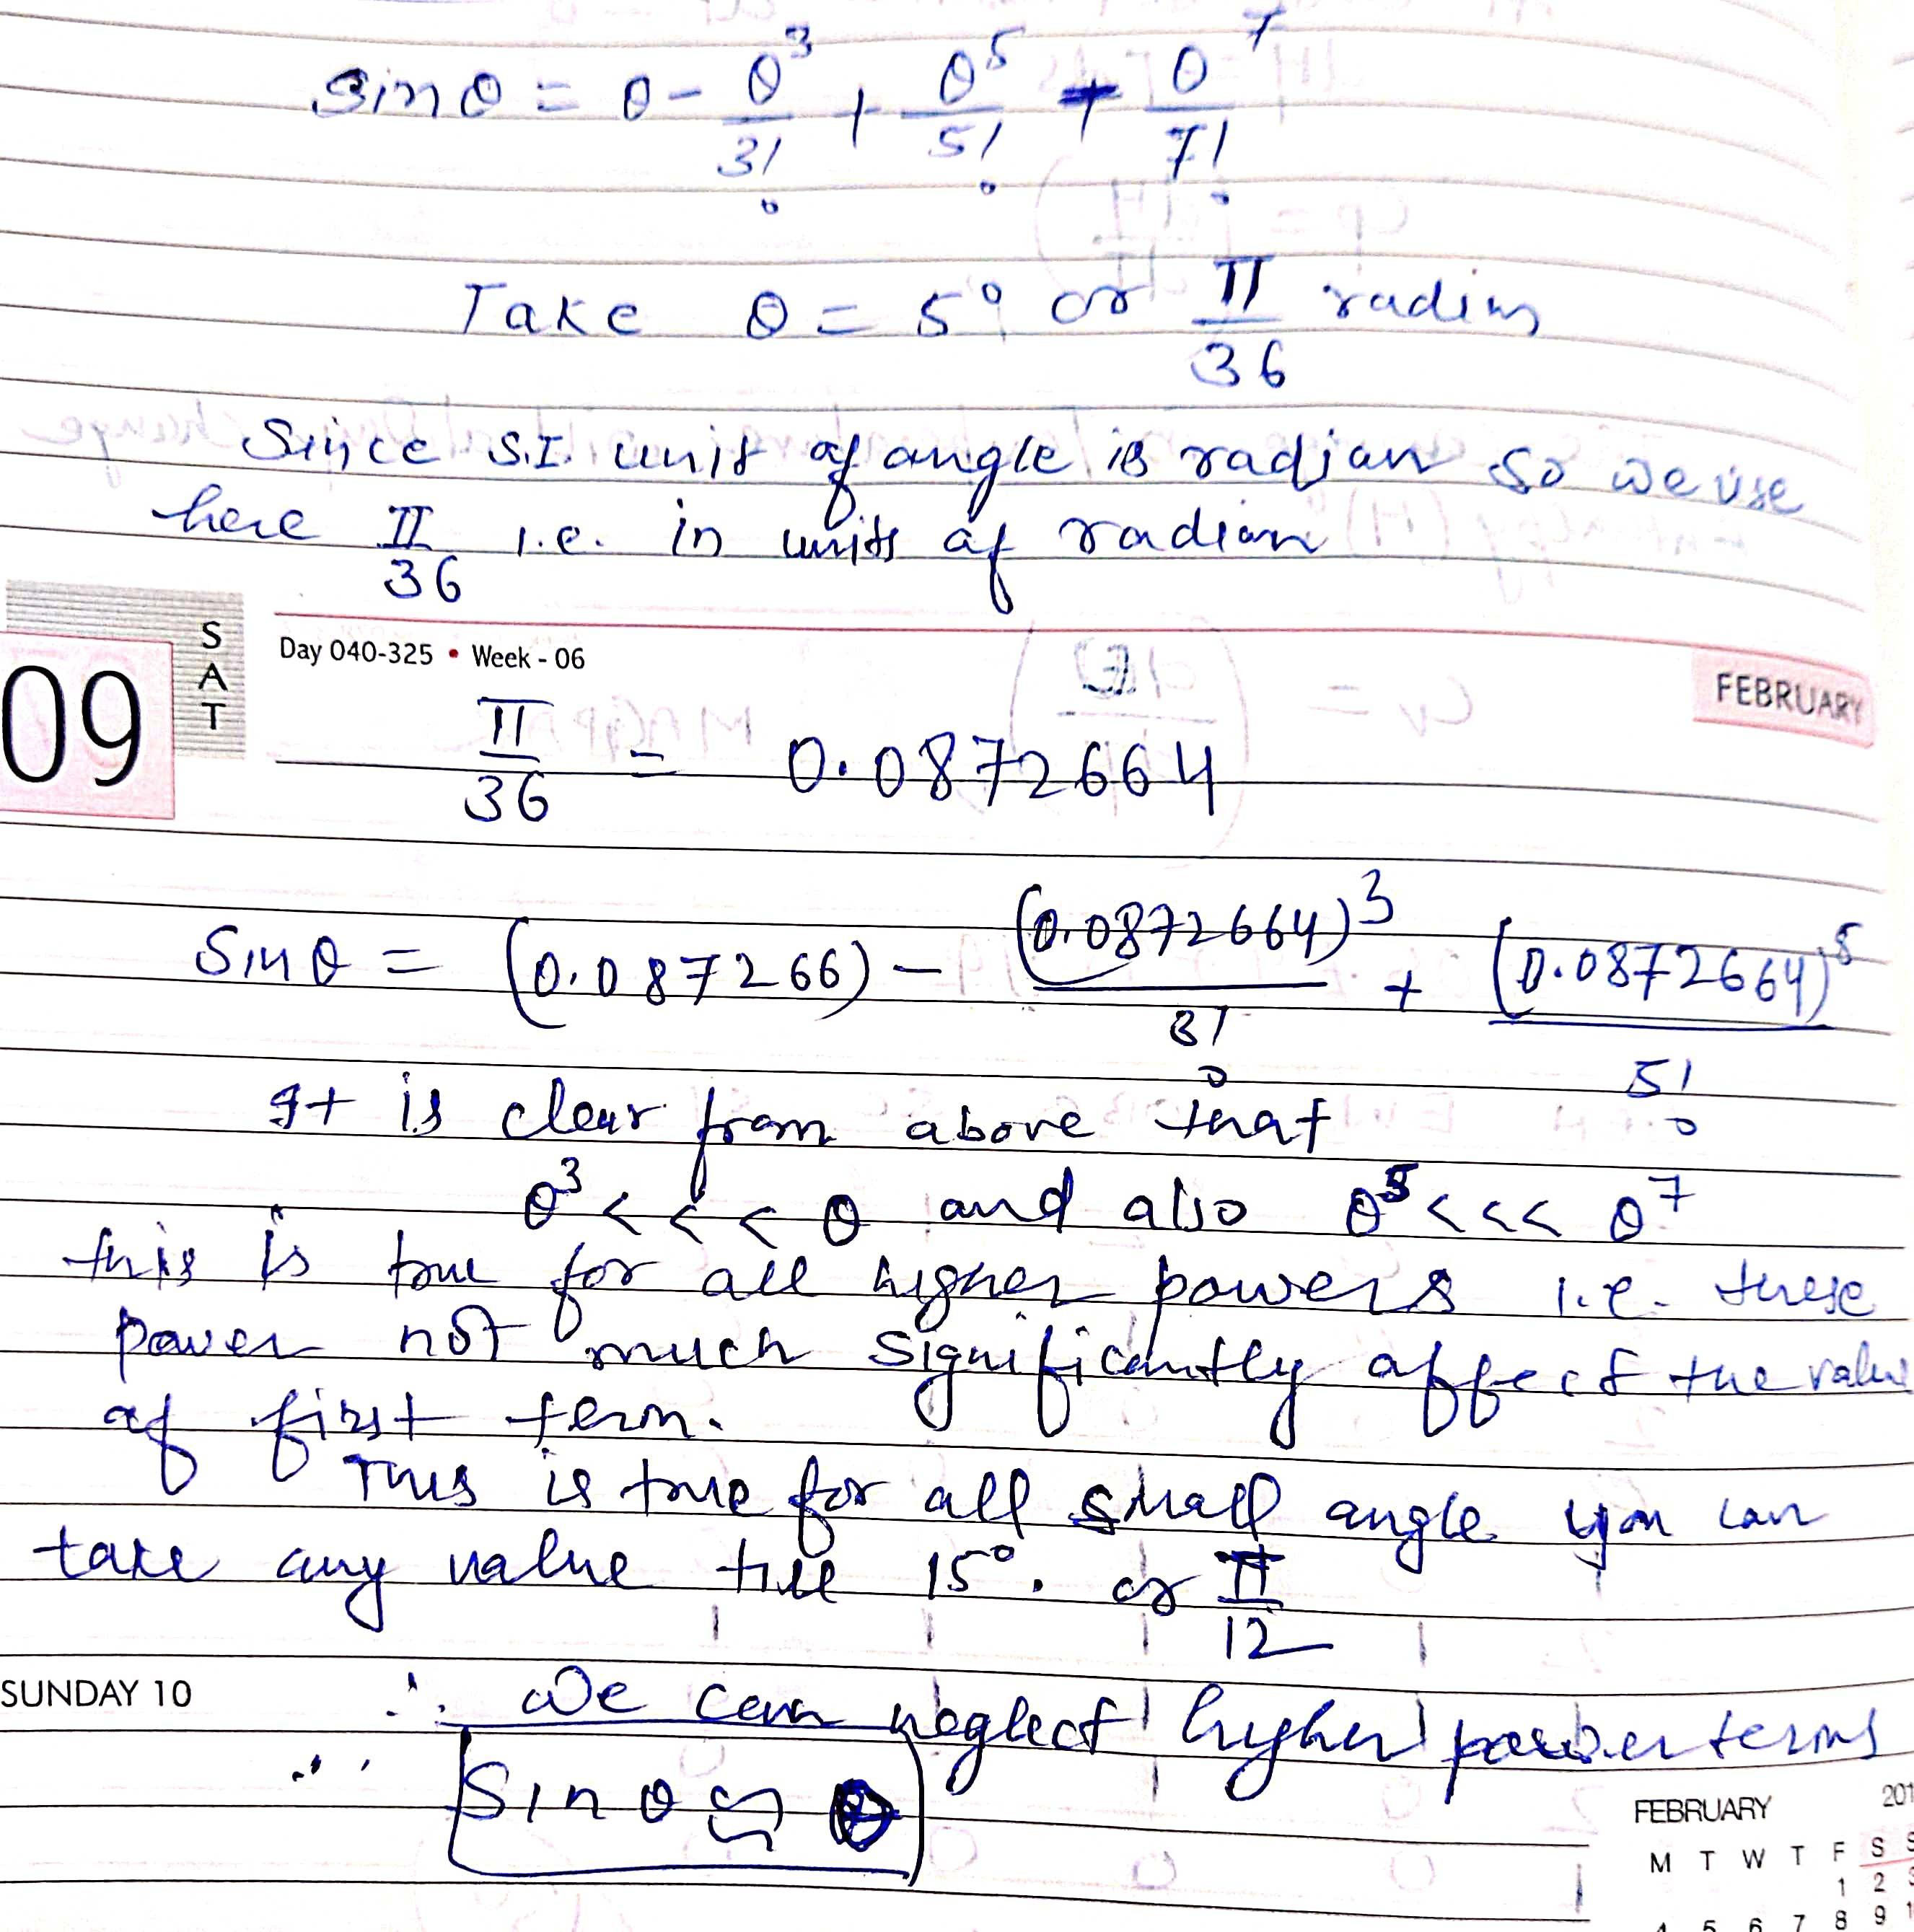 sin θ = θ - θ³/3! + θ⁵/5! + θ⁷/7!
Take θ = 5° or π/36 radins
Since S.I. unit of angle is radian so we use
here π/36 i.e. in units of radian
09 SAT Day 040-325 • Week - 06 FEBRUARY
π/36 = 0.0872664
Sin θ = (0.087266) - (0.0872664)³/3! + (0.0872664)⁵/5!
It is clear from above that
θ³ <<< θ and also θ⁵ <<< θ⁷
this is true for all higher powers i.e. these
power not much significantly affect the value
of first term.
This is true for all small angle you can
take any value till 15°. or π/12
SUNDAY 10 ∴ we can neglect higher power terms
∴ Sin θ ≈ θ
FEBRUARY 201
M T W T F S S
1 2 3
4 5 6 7 8 9 1